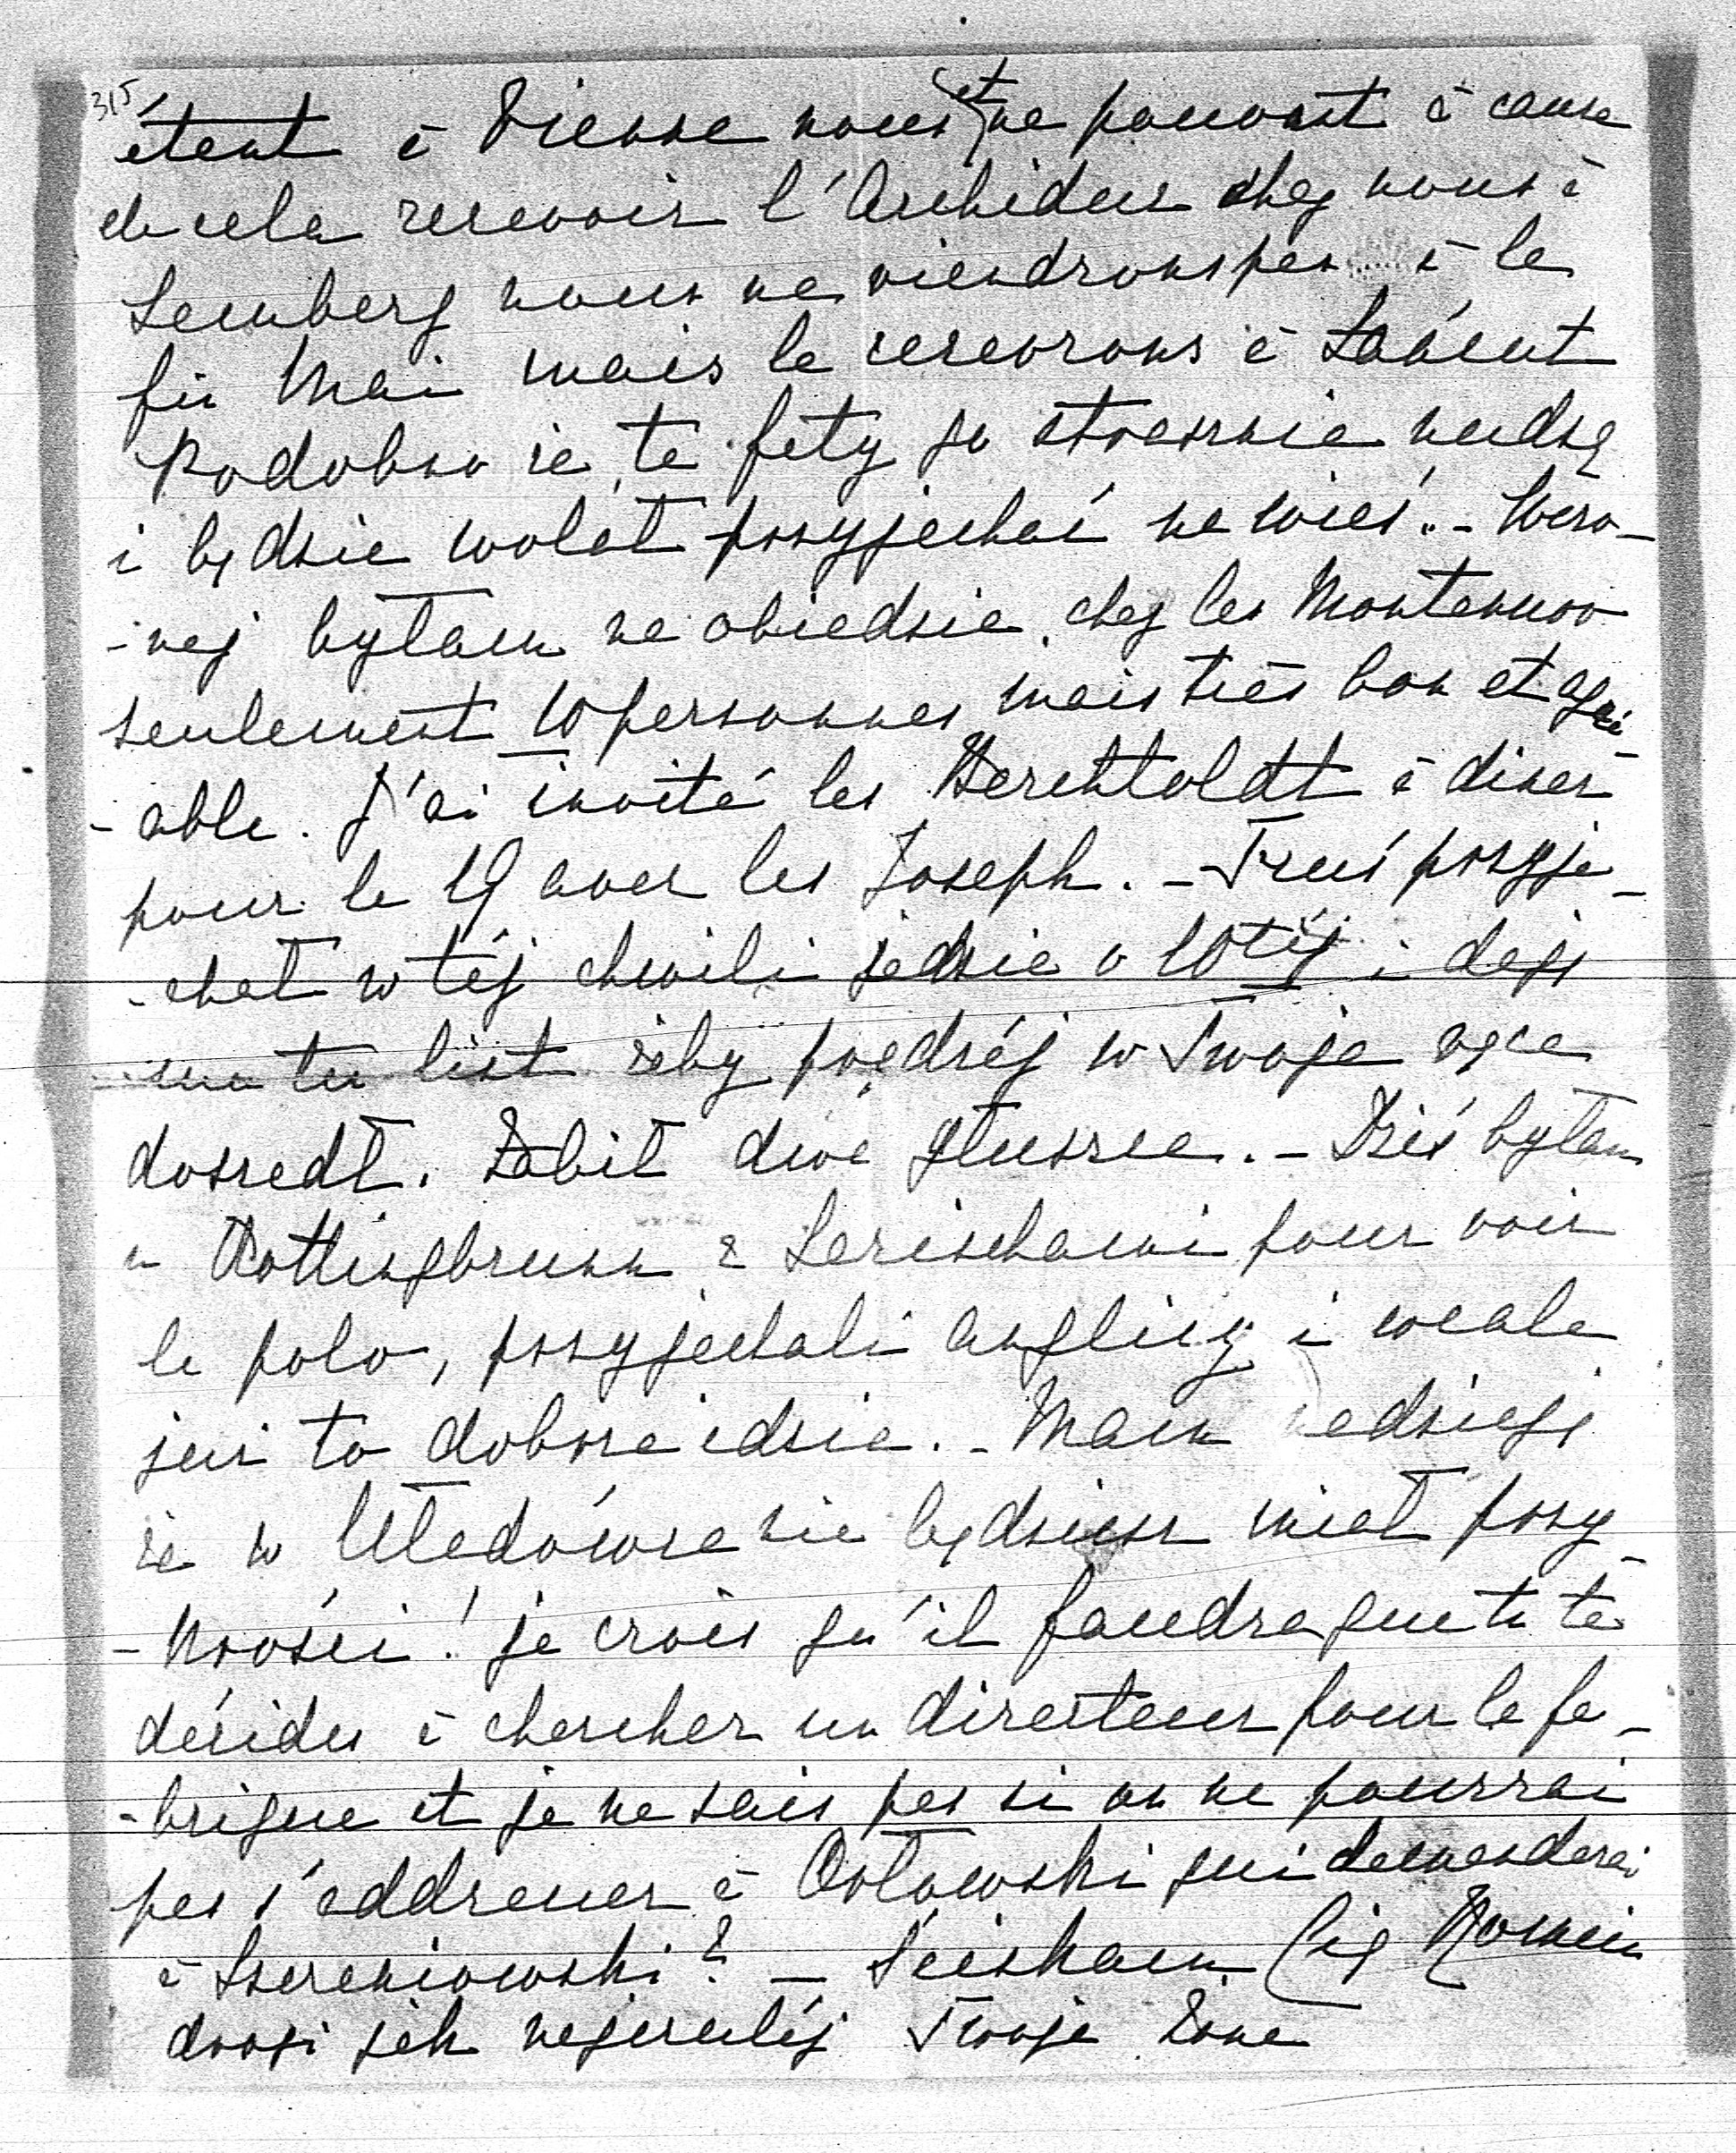 315
étant à Vienne nous et ne pouvant à cause
de cela recevoir l'Archiduc chez nous à
Lemberg nous ne viendrons pas à la
fin Mai mais le recevrons à Łańcut
Podobno że te fety go strasznie nudzą
i będzie wolał przyjechać na wieś. - Wczo-
-raj byłam na obiedzie chez les Montenuovo
seulement 10 personnes mais très bon et agré-
-able. J'ai invité les Berchtoldt à diner
pour le 19 avec les Joseph. - Fruś przyje-
-chał w téj chwili jedzie o 10téj i daję
mu tu list żeby prędzéj w Twoje ręce
doszedł. Zabił dwa głuszce. - Dziś byłam
w Kottingbrunn z Larischami pour voir
le polo, przyjechali anglicy i wcale
już to dobrze idzie. - Mam nadzieję
że w Uładówce nie będziesz miał przy-
-krości! je crois qu'il faudra que tu te
décides à chercher un directeur pour la fa-
-brique et je ne sais pas si on ne pourrai
pas s'addresser à Orłowski qui demanderai
à Szczeniowski? - Ściskam Cię Romciu
drogi jak najczuléj Twoja Żona